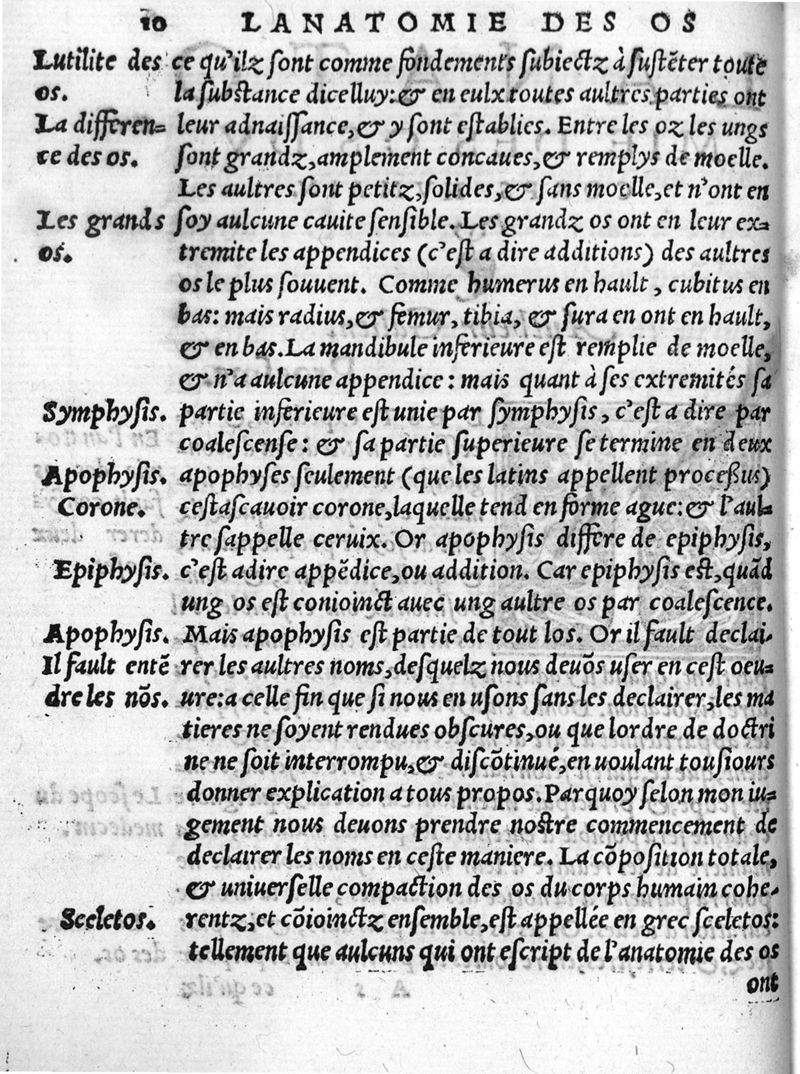 10 LANATOMIE DES OS
Lutilite des ce qu'ilz sont comme fondements subiectz à sustẽter toute
os. la substance dicelluy:& en eulx toutes aultres parties ont
La differen= leur adnaissance,& y sont establies. Entre les oz les ungs
ce des os. sont grandz,amplement concaues,& remplys de moelle.
Les aultres sont petitz,solides,& sans moelle,et n'ont en
Les grands soy aulcune cauite sensible. Les grandz os ont en leur ex=
os. tremite les appendices (c'est a dire additions) des aultres
os le plus souuent. Comme humerus en hault, cubitus en
bas: mais radius,& femur, tibia, & sura en ont en hault,
& en bas. La mandibule inferieure est remplie de moelle,
& n'a aulcune appendice: mais quant à ses extremités sa
Symphysis. partie inferieure est unie par symphysis, c'est a dire par
coalescense: & sa partie superieure se termine en deux
Apophysis. apophyses seulement (que les latins appellent processus)
Corone. cestascauoir corone,laquelle tend en forme ague:& l'aul=
tre sappelle ceruix. Or apophysis differe de epiphysis,
Epiphysis. c'est adire appẽdice,ou addition. Car epiphysis est,quãd
ung os est conioinct auec ung aultre os par coalescence.
Apophysis. Mais apophysis est partie de tout los. Or il fault declai-
Il fault entẽ rer les aultres noms,desquelz nous deuõs user en cest oeu=
dre les nõs. ure:a celle fin que si nous en usons sans les declairer,les ma
tieres ne soyent rendues obscures,ou que lordre de doctri
ne ne soit interrompu,& discõtinué,en uoulant tousiours
donner explication a tous propos. Parquoy selon mon iu=
gement nous deuons prendre nostre commencement de
declairer les noms en ceste maniere. La cõposition totale,
& uniuerselle compaction des os du corps humain cohe-
Sceletos. rentz,et cõioinctz ensemble,est appellée en grec sceletos:
tellement que aulcuns qui ont escript de l'anatomie des os
ont